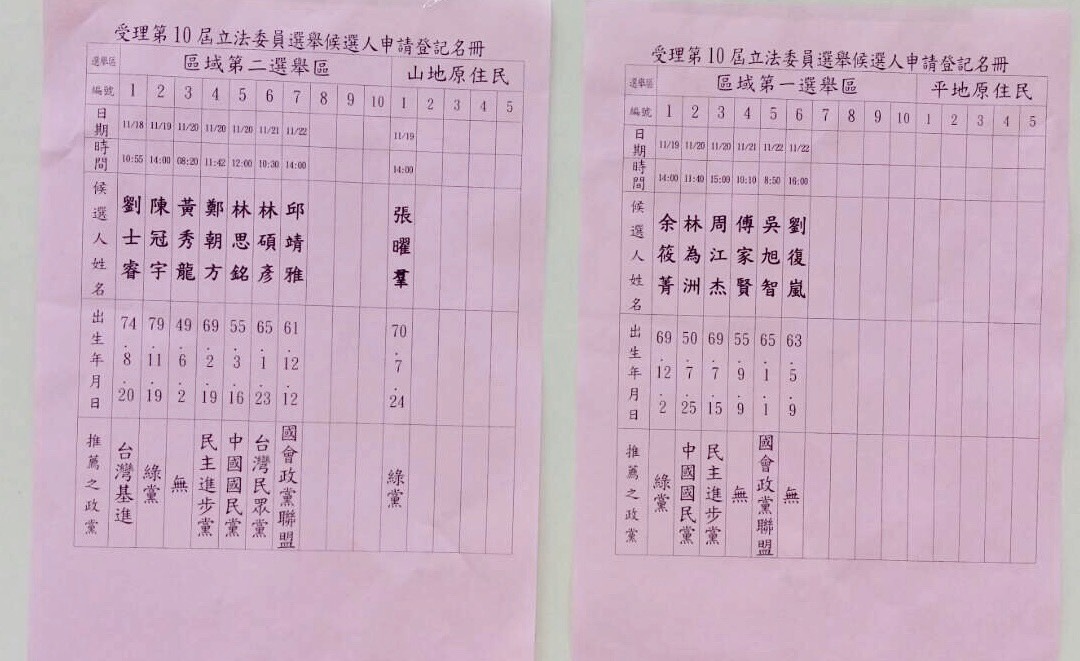 受理第10屆立法委員選舉候選人申請登記名冊
選舉區 區域第二選舉區 山地原住民
編號 1 2 3 4 5 6 7 8 9 10 1 2 3 4 5
日期 11/18 11/19 11/20 11/20 11/20 11/21 11/22 11/19
時間 10:55 14:00 08:20 11:42 12:00 10:30 14:00 14:00
候選人姓名 劉士睿 陳冠宇 黃秀龍 鄭朝方 林思銘 林碩彥 邱靖雅 張曜羣
出生年月日 74.8.20 79.11.19 49.6.2 69.2.19 55.3.16 65.1.23 61.12.12 70.7.24
推薦之政黨 台灣基進 綠黨 無 民主進步黨 中國國民黨 台灣民眾黨 國會政黨聯盟 綠黨
受理第10屆立法委員選舉候選人申請登記名冊
選舉區 區域第一選舉區 平地原住民
編號 1 2 3 4 5 6 7 8 9 10 1 2 3 4 5
日期 11/19 11/20 11/20 11/21 11/22 11/22
時間 14:00 11:40 15:00 10:10 8:50 16:00
候選人姓名 余筱菁 林為洲 周江杰 傅家賢 吳旭智 劉復嵐
出生年月日 69.12.2 50.7.25 69.7.15 55.9.9 65.1.1 63.5.9
推薦之政黨 綠黨 中國國民黨 民主進步黨 無 國會政黨聯盟 無